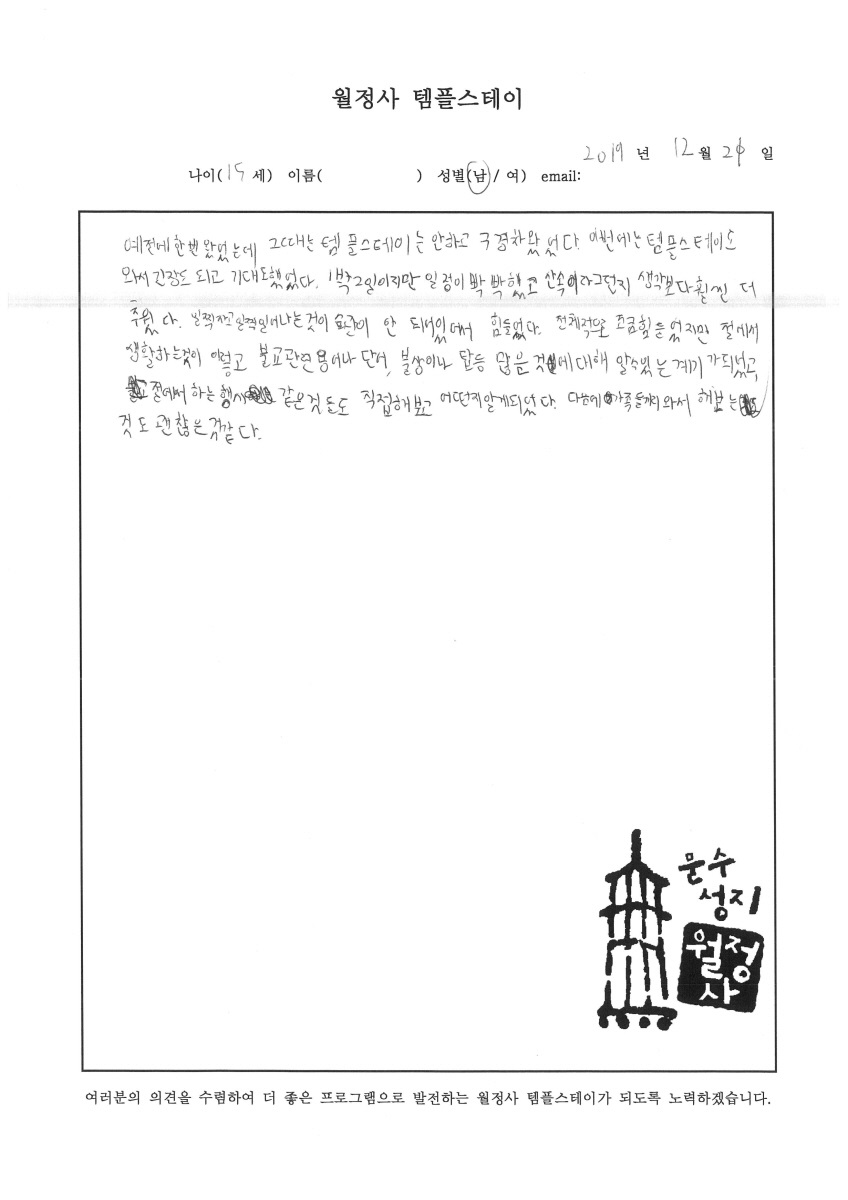 월정사 템플스테이
2019 년 12 월 2 일
나이( 15 세) 이름( ) 성별(남/ 여) email:
예전에 한번 왔었는데 그때는 템플스테이는 안하고 구경차 왔었다. 이번에는 템플스테이도
와서 긴장도 되고 기대도했었다. 1박2일이지만 일정이 빡빡했고 산속이라그런지 생각보다 훨씬 더
추웠다. 일찍자고 일찍일어나는것이 습관이 안 되어있어서 힘들었다. 전체적으로 조금힘들었지만 절에서
생활하는것이 이렇고 불교관련 용어나 단어, 불상이나 탑등 많은 것에대해 알수있는 계기가되었고,
절에서 하는 행사 같은것들도 직접해보고 어떤지알게되었다. 다음에 가족들끼리 와서 해보는
것도 괜찮은것같다.
문수
성지
월정
사
여러분의 의견을 수렴하여 더 좋은 프로그램으로 발전하는 월정사 템플스테이가 되도록 노력하겠습니다.